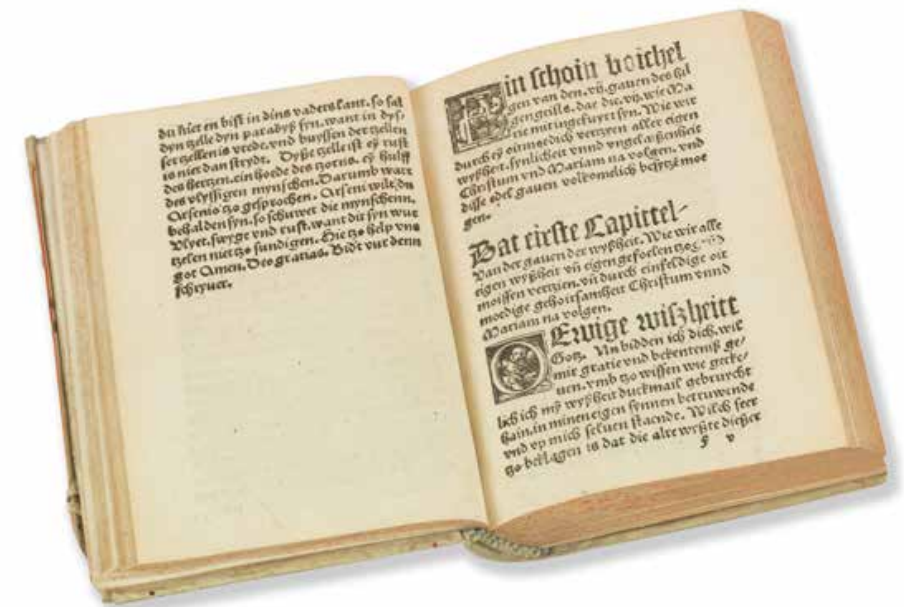 du hier en bist in dins vaders lant. so sal
dyn tzelle dyn paradyß syn. want in dys,
ser tzellen is vrede. vnd buyssen der tzellen
is niet dan strydt. Dyße tzelle ist eỹ rust
des hertzen. ein hoede des tzorns. eỹ hulff
des vlyssigen mynschen. Darumb wart
Arsenio tzo gesprochen. Arseni wilt du
behalden syn. so schuwet die mynschenn.
Vlyet, swygt vnd rust. want dit syn wur
tzelen niet tzo sundigen. Hie tzo help vns
got Amen. Deo gratias. Bidt vur denn
schryuer.
in schoin boichel
gen van den. vij. gauen des hil
gen geists. dar die. vij. wie Ma
rie mit ingefuyrt syn. Wie wir
durch eỹ oitmoedich vertzyen aller eigen
wyßheit. synlicheit vnnd vngelaeßenheit
Christum vnd Mariam na volgen. vnd
disse edel gauen volkomelich besytzẽ moe
gen.
Dat eirste Capittel-
Van der gauen der wyßheit. Wie wir alle
eigen wyßheit vñ eigen gefoelen tzo
moissen vertzien. vñ durch einfeldige oit
moedige gehoirsamheit Christum vnnd
Mariam na volgen.
O Ewige wiszheitt
Gotz. Nu bidden ich dich. wil
mir gratie vnd bekenteniß ge/
uen. vmb tzo wissen wie gecke,
lich ich mỹ wyßheit duckmail gebruycht
hain. in minen eigen synnen betruwende
vnd vp mich seluen staende. Wilch seer
tzo beklagen is dat die alre wyßte dießer
F v